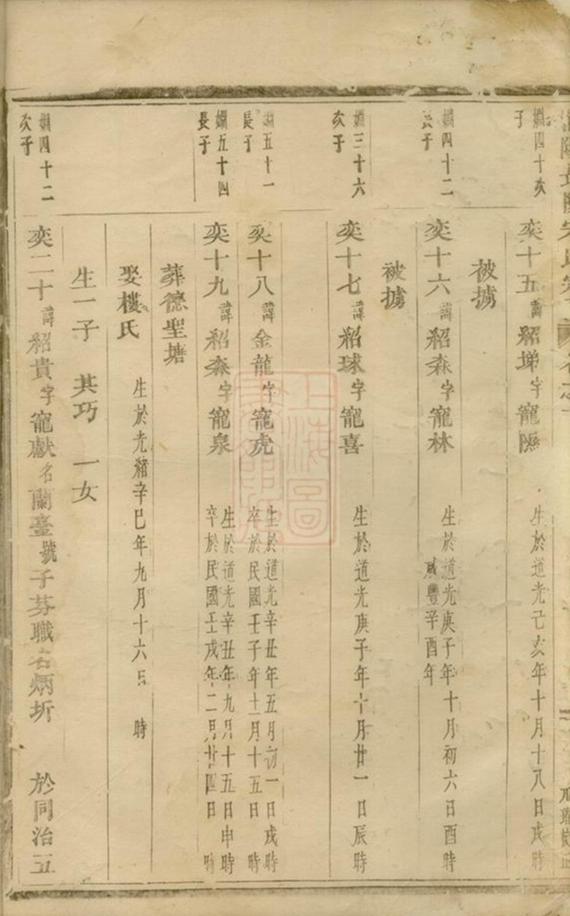 嫻四十次
子
奕十五諱紹埽字寵隰
生於道光己亥年十月十八日戌時
被擄
嫻四十二
長子
奕十六諱紹森字寵林
生於道光庚子年十月初六日酉時
咸豐辛酉年
被擄
嫻三十六
次子
奕十七諱紹球字寵喜
生於道光庚子年十月廿一日辰時
嫻五十一
長子
奕十八諱金龍字寵虎
生於道光辛丑年五月初一日戌時
卒於民國壬子年十二月十五日 時
嫻五十四
長子
奕十九諱紹森字寵泉
生於道光辛丑年九月十五日申時
卒於民國壬戌年二月廿四日 時
葬德聖塘
娶樓氏
生於光緒辛巳年九月十六日 時
生一子 其巧 一女
嫻四十二
次子
奕二十諱紹貴字寵獻名蘭臺號子芬職名炳圻 於同治五